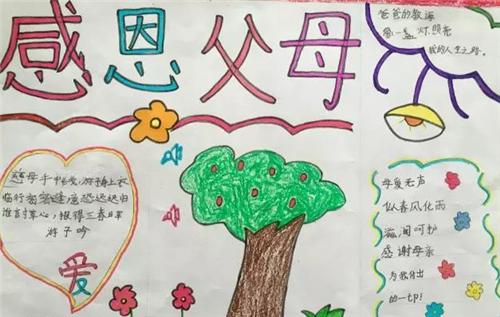 感恩父母
爸爸的教诲
像一盏灯,照亮
我的人生之路。
慈母手中线,游子身上衣
临行密密缝意恐迟迟归
谁言寸草心,报得三春日军
游子吟
爱
母爱无声
似春风化雨
滋润呵护
感谢母亲
为我付出
的一切!